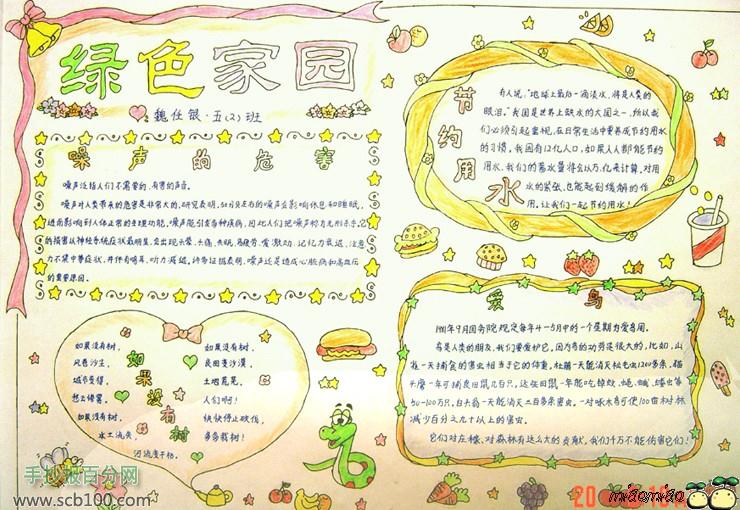 绿色家园
魏仕银·五(2)班
噪声的危害
噪声泛指人们不需要的、有害的声音。
噪声对人类带来的危害是非常大的,研究表明,
进而影响到人体正常的生理功能,噪声能引发多种疾病,因此人们把噪声称为无形杀手,它
的损害以神经系统症状最明显,会出现头晕、头痛、失眠、易疲劳、爱激动、记忆力衰退、注意
力不集中等症状,并伴有耳鸣、听力减退,许多证据表明,噪声还是造成心脏病和高血压
的重要原因。
节约用水
有人说:“地球上最后一滴淡水,将是人类的
眼泪。”我国是世界上缺水的大国之一,所以我
们必须引起重视,在日常生活中要养成节约用水
的习惯,我国有12亿人口,如果人人都能节约
用水,我们的蓄水量将会以万、亿来计算,对用
水的紧张,也能起到缓解的作
用,让我们一起节约用水!
如果没有树
如果没有树,
风卷沙尘,
城市变得,
愁云惨雾。
如果没有树,
水土流失,
河流变干杨。
如果没有树,
良田变沙漠,
土地荒芜。
人们啊!
快快停止砍伐,
多多栽树!
爱鸟
1981年9月国务院规定每年4—5月中的一个星期为爱鸟周。
鸟是人类的朋友,我们要爱护它,因为鸟的功劳是很大的,比如,山
雀一天捕食的害虫相当于它的体重,杜鹃一天能消灭松毛虫1200多条,猫
头鹰一年可捕食田鼠几百只,
减少百分之九十以上的害虫。
它们对庄稼、对森林有这么大的贡献,我们千万不能伤害它们!
手抄报百分网
www.scb100.com
miaomiao